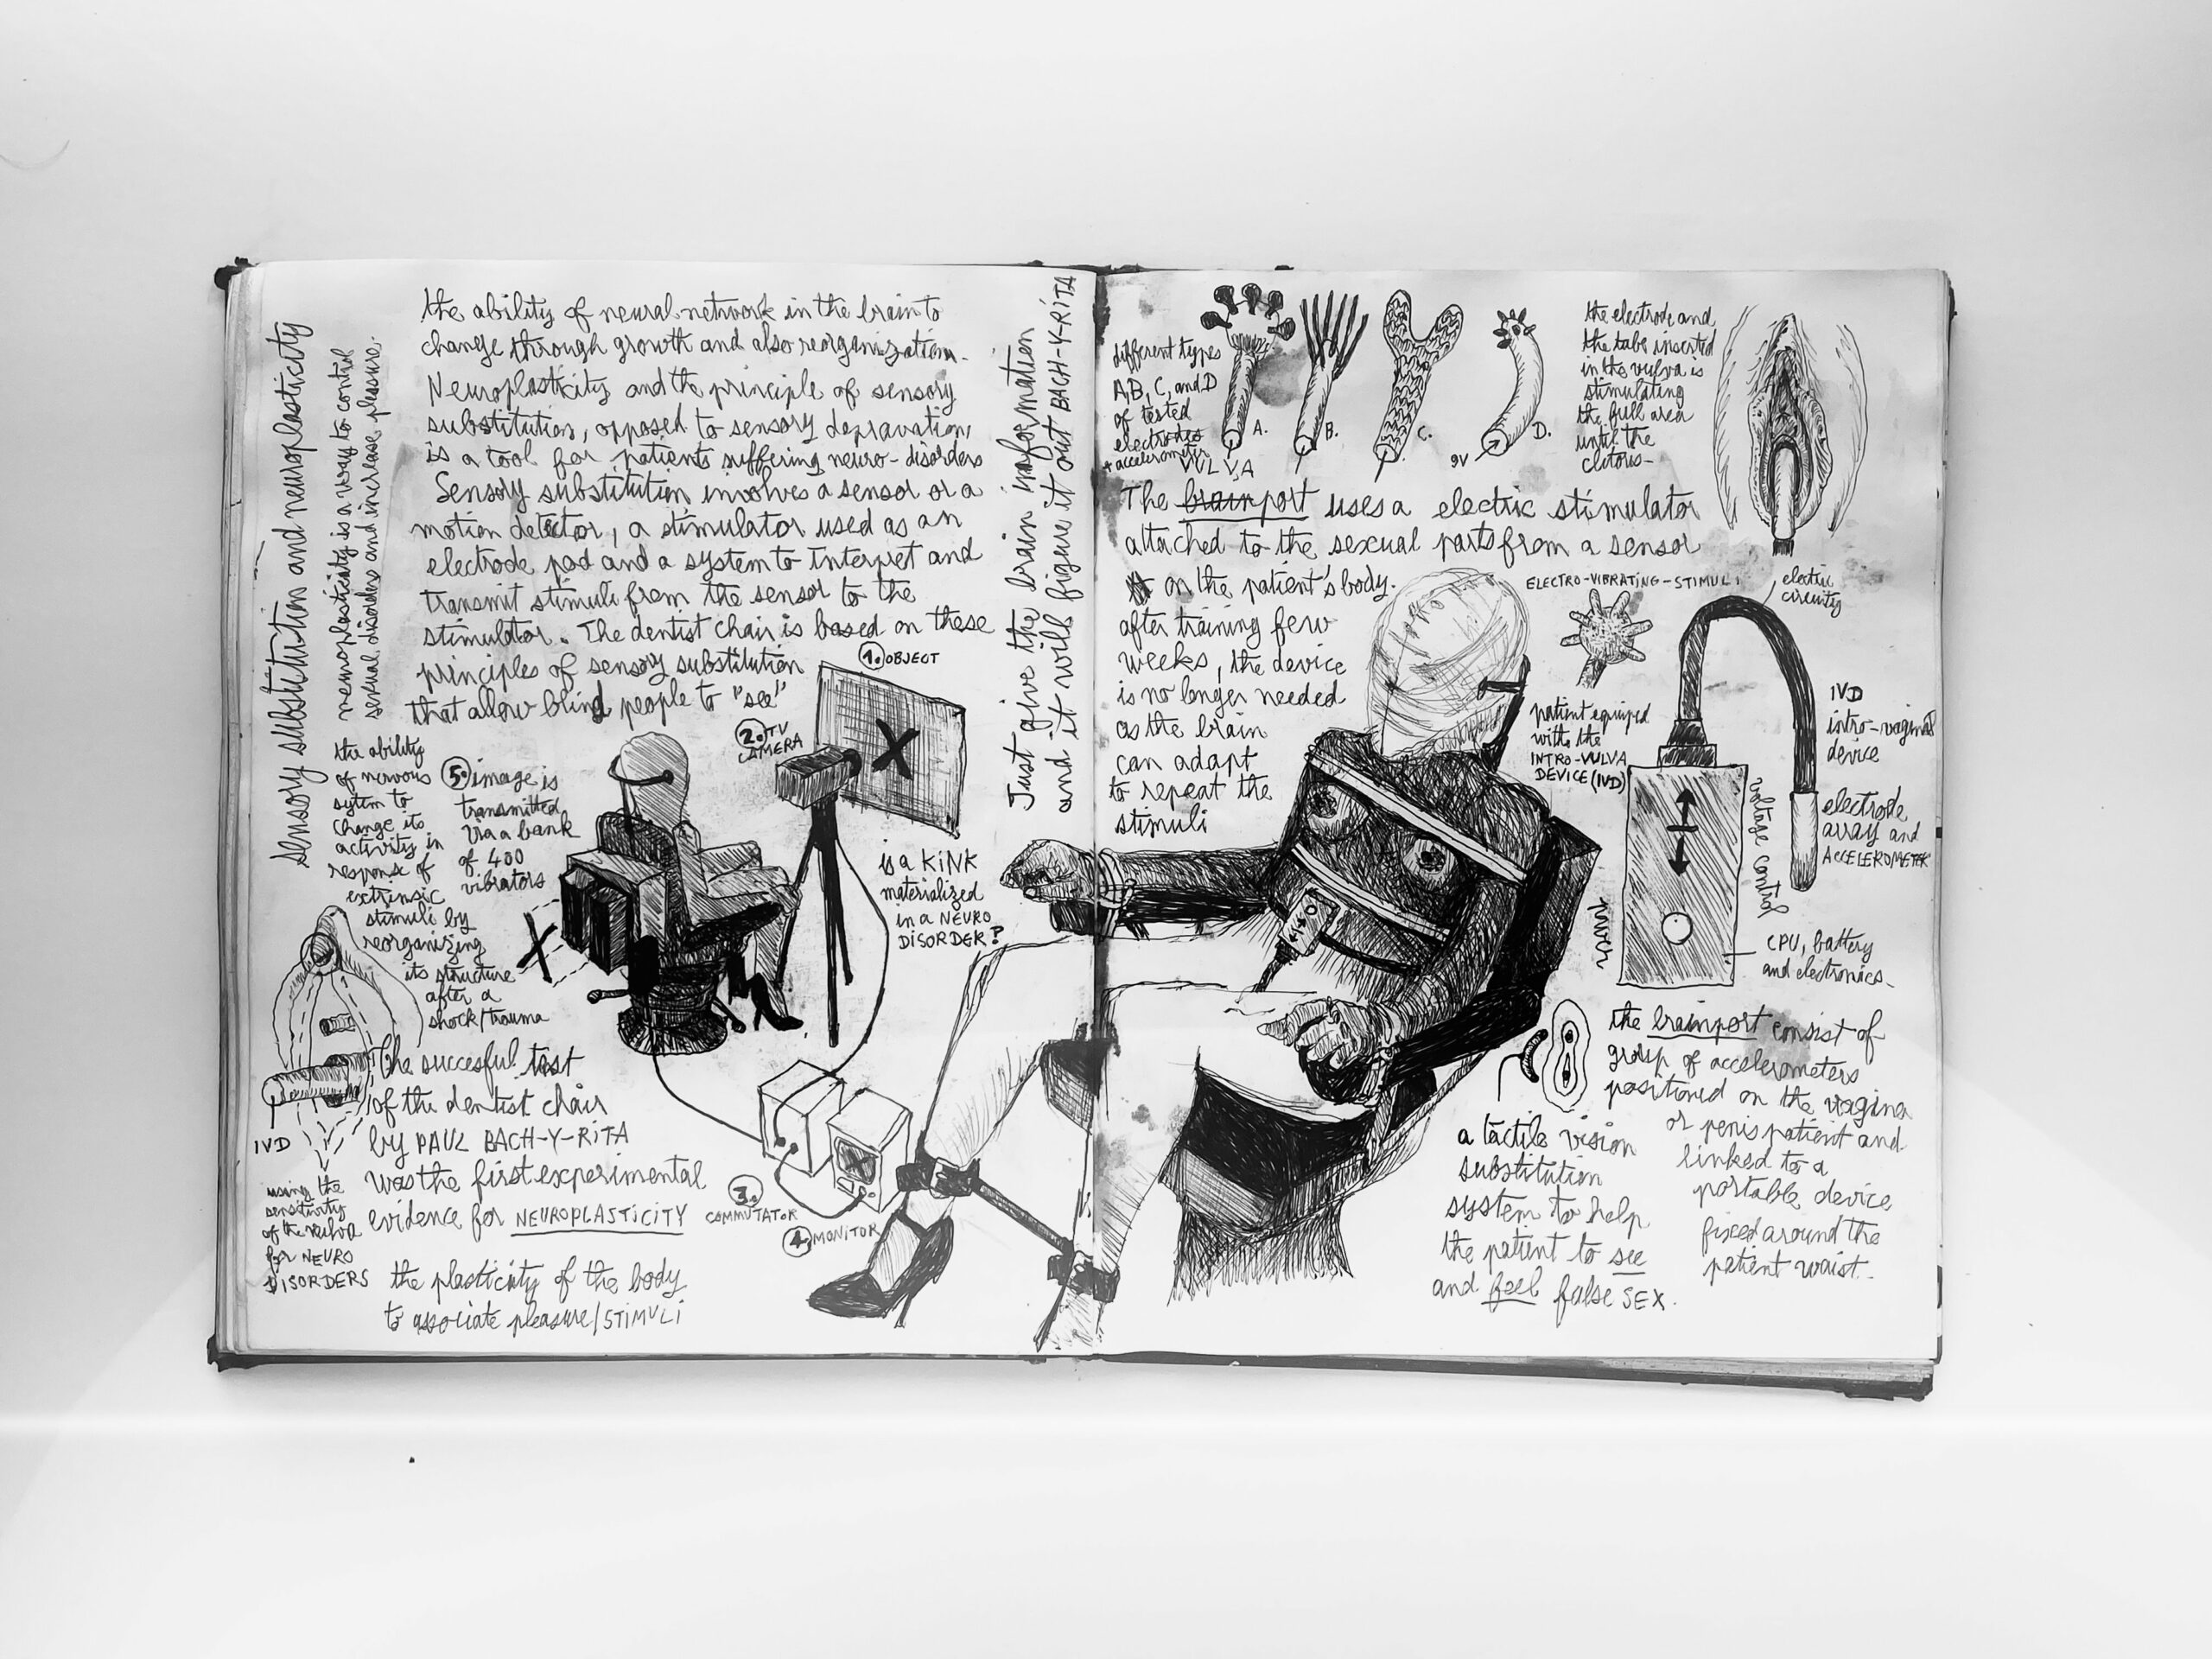 sensory substitution and neuroplasticity
neuroplasticity is a way to control
sexual disorders and increase pleasure.
the ability of neural network in the brain to
change through growth and also reorganization.
Neuroplasticity and the principle of sensory
substitution, opposed to sensory depravation,
is a tool for patients suffering neuro-disorders
Sensory substitution involves a sensor or a
motion detector, a stimulator used as an
electrode pad and a system to interpret and
transmit stimuli from the sensor to the
stimulator. The dentist chair is based on these
principles of sensory substitution
that allow blind people to "see"
1. OBJECT
2. TV
CAMERA
X
the ability
of nervous
sytem to
change its
activity in
response of
extrinsic
stimuli by
reorganizing
its structure
after a
shock/trauma
5. image is
transmitted
via a bank
of 400
vibrators
X
is a KINK
materialized
in a NEURO
DISORDER?
The succesful test
of the dentist chair
by PAUL BACH-Y-RITA
was the first experimental
evidence for NEUROPLASTICITY
IVD
using the
sensitivity
of the vulva
for NEURO
DISORDERS
3.
COMMUTATOR
4. MONITOR
X
the plasticity of the body
to associate pleasure/STIMULI
Just give the brain information
and it will figure it out BACH-Y-RITA
different types
A, B, C, and D
of tested
electrodes
+ accelerometer
A.
B.
C.
D.
9V
the electrode and
the tabs inserted
in the vulva is
stimulating
the full area
until the
clitoris-
VULVA
The brainport uses a electric stimulator
attached to the sexual parts from a sensor
on the patient's body.
after training few
weeks, the device
is no longer needed
as the brain
can adapt
to repeat the
stimuli
ELECTRO-VIBRATING-STIMULI
electric
circuity
patient equiped
with the
INTRO-VULVA
DEVICE (IVD)
IVD
intro-vaginal
device
voltage control
electrode
array and
ACCELEROMETER
power
CPU, battery
and electronics-
the brainport consist of
group of accelerometers
positioned on the vagina
or penis patient and
linked to a
portable device
fixed around the
patient waist.
a tactile vision
substitution
system to help
the patient to see
and feel false SEX.